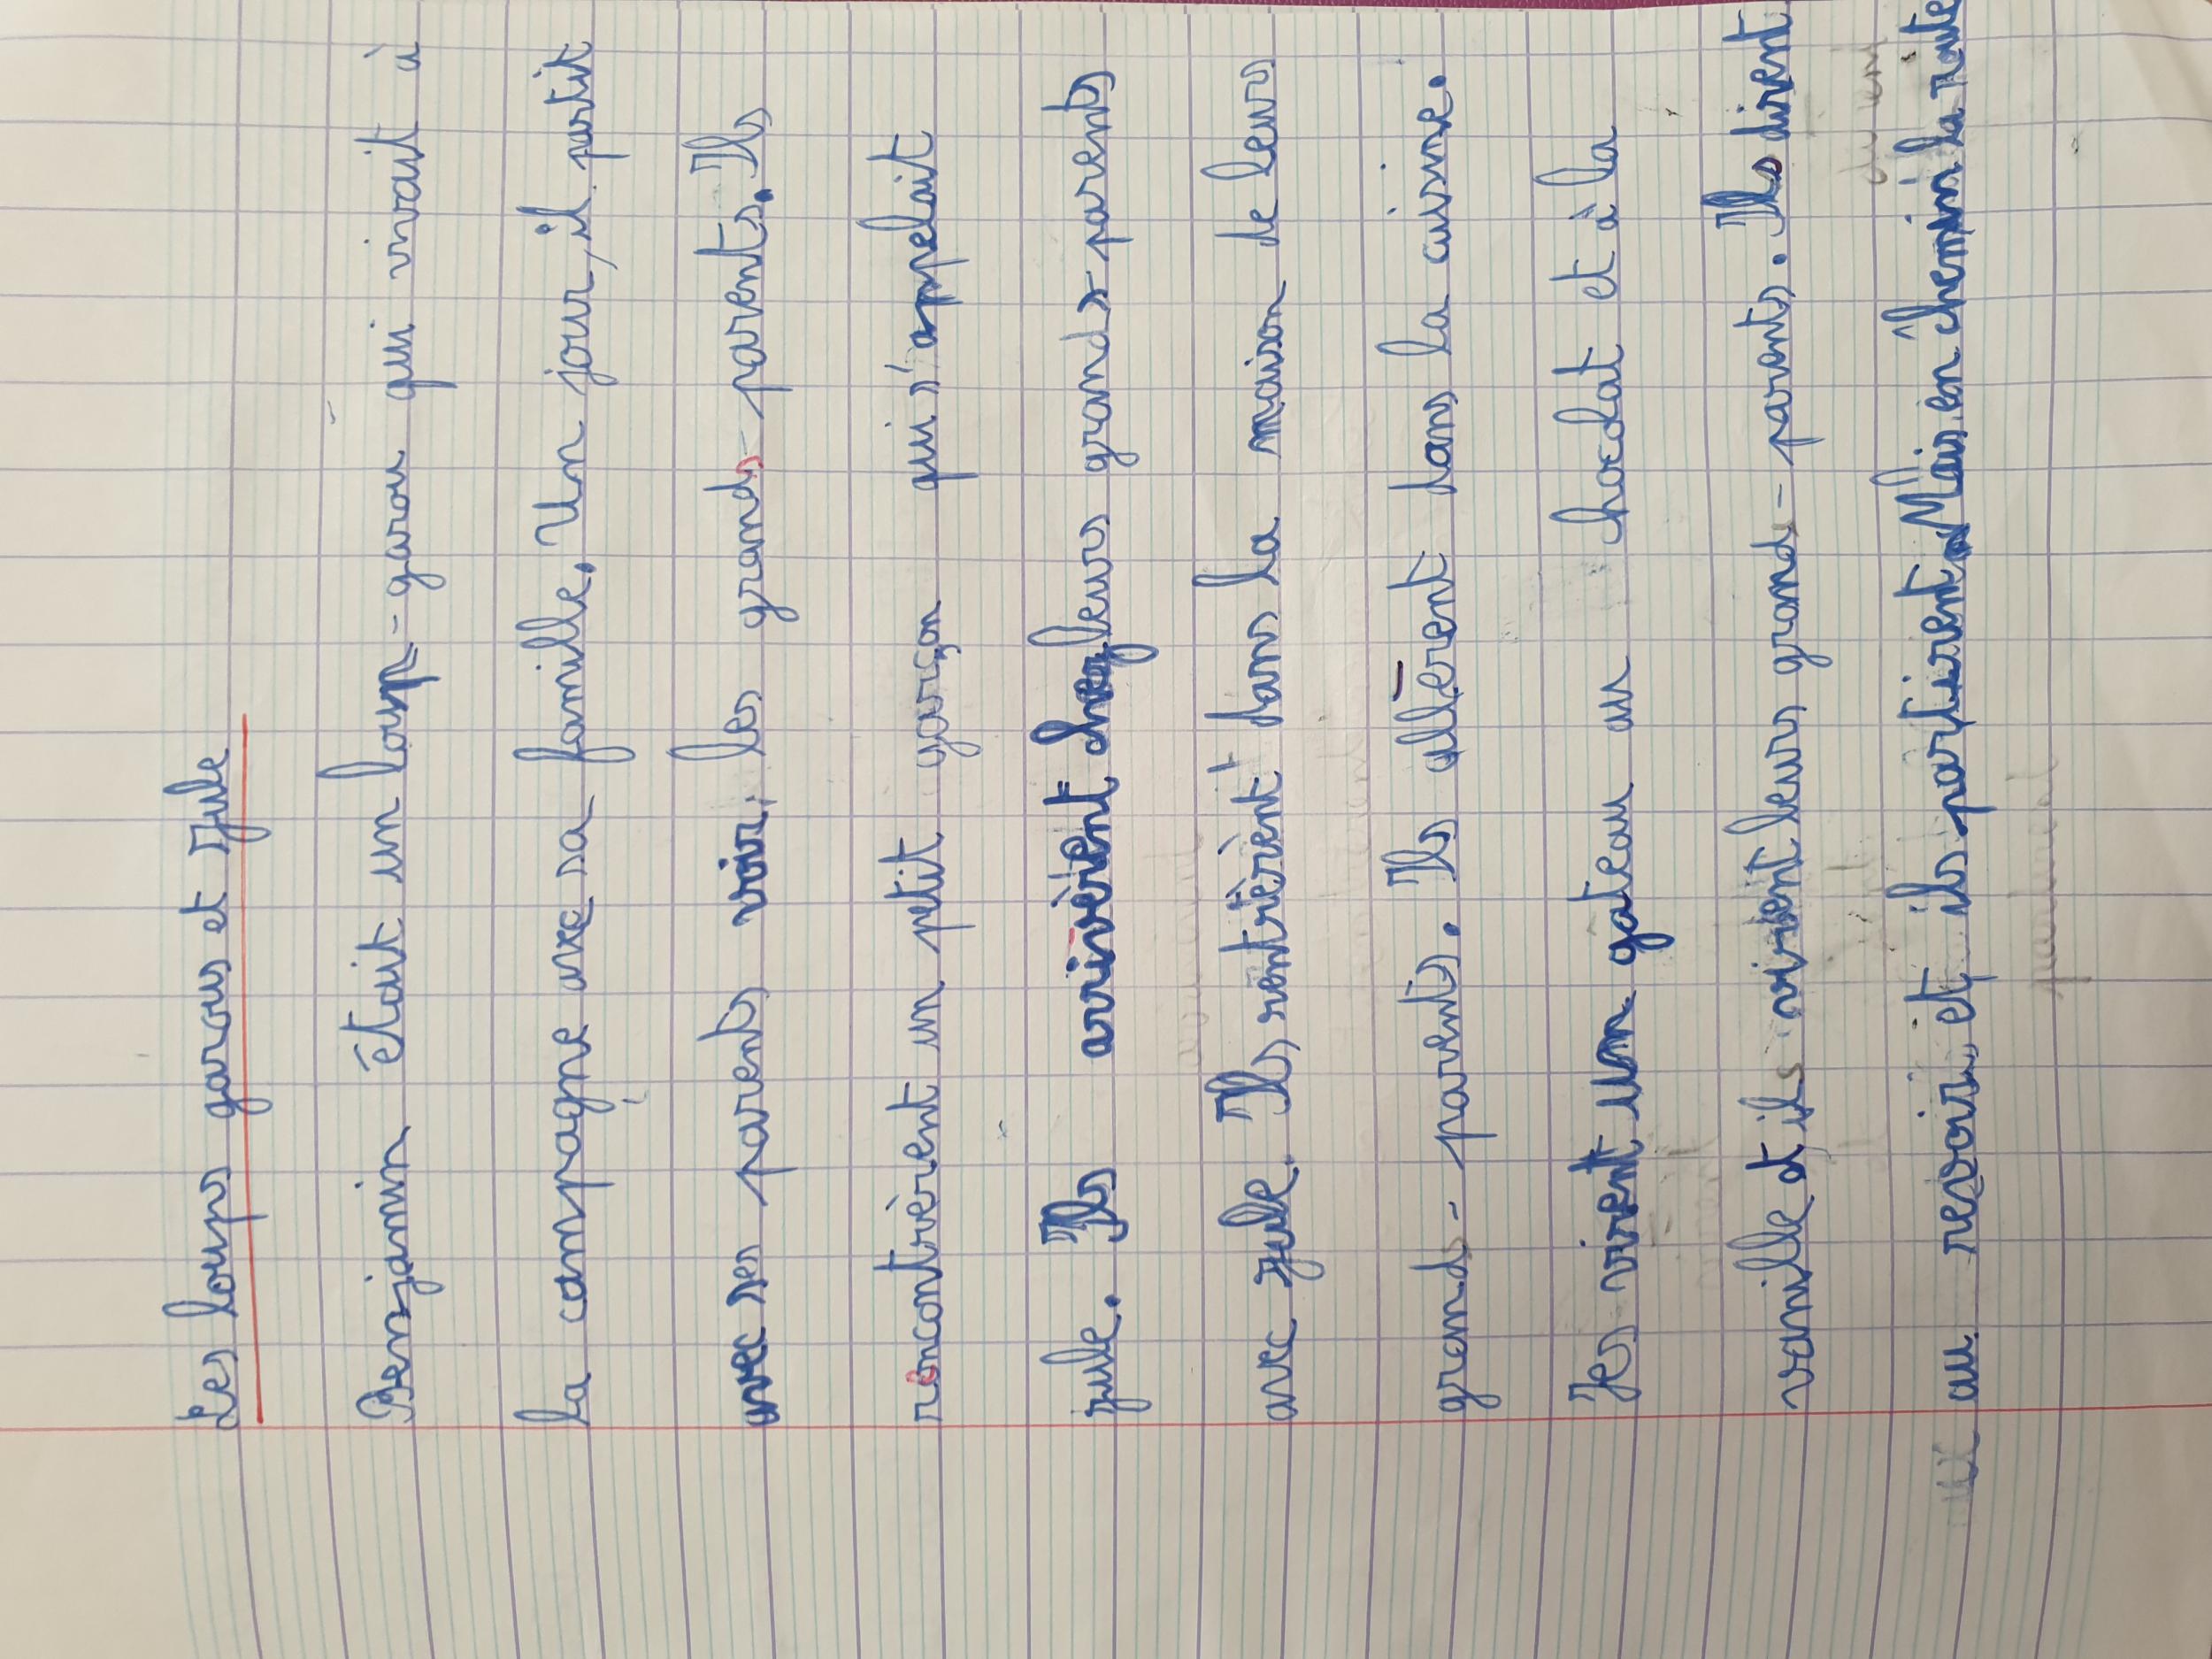 Les loups garous et Jule
Benjamin était un loup-garou qui vivait à
la campagne avec sa famille. Un jour, il partit
avec ses parents voir les grands-parents. Ils
rencontrèrent un petit garçon qui s'appelait
jule. Ils arrivèrent chez leurs grands-parents
avec jule. Ils rentrèrent dans la maison de leurs
grands-parents. Ils allèrent dans la cuisine.
Ils virent un gateau au chocolat et à la
vanille et ils virent leurs grands-parents. Ils dirent
au revoir et ils partirent. Mais en chemin la route